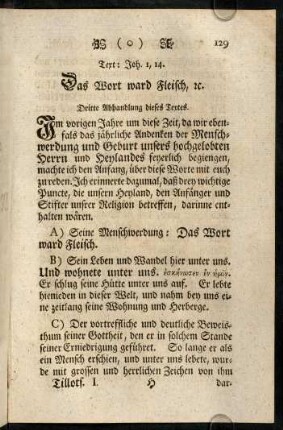 ( o ) 129
Text: Joh. 1, 14.
Das Wort ward Fleisch, ꝛc.
Dritte Abhandlung dieses Textes.
Im vorigen Jahre um diese Zeit, da wir eben-
fals das jährliche Andenken der Mensch-
werdung und Geburt unsers hochgelobten
Herrn und Heylandes feyerlich begiengen,
machte ich den Anfang, über diese Worte mit euch
zu reden. Ich erinnerte dazumal, daß drey wichtige
Puncte, die unsern Heyland, den Anfänger und
Stifter unsrer Religion betreffen, darinne ent-
halten wären.
A) Seine Menschwerdung: Das Wort
ward Fleisch.
B) Sein Leben und Wandel hier unter uns.
Und wohnete unter uns. ἐσκήνωσεν ἐν ἡμῖν.
Er schlug seine Hütte unter uns auf. Er lebte
hienieden in dieser Welt, und nahm bey uns ei-
ne zeitlang seine Wohnung und Herberge.
C) Der vortreffliche und deutliche Beweis-
thum seiner Gottheit, den er in solchem Stande
seiner Erniedrigung geführet. So lange er als
ein Mensch erschien, und unter uns lebete, wur-
de mit grossen und herrlichen Zeichen von ihm
Tillots. I. H dar-